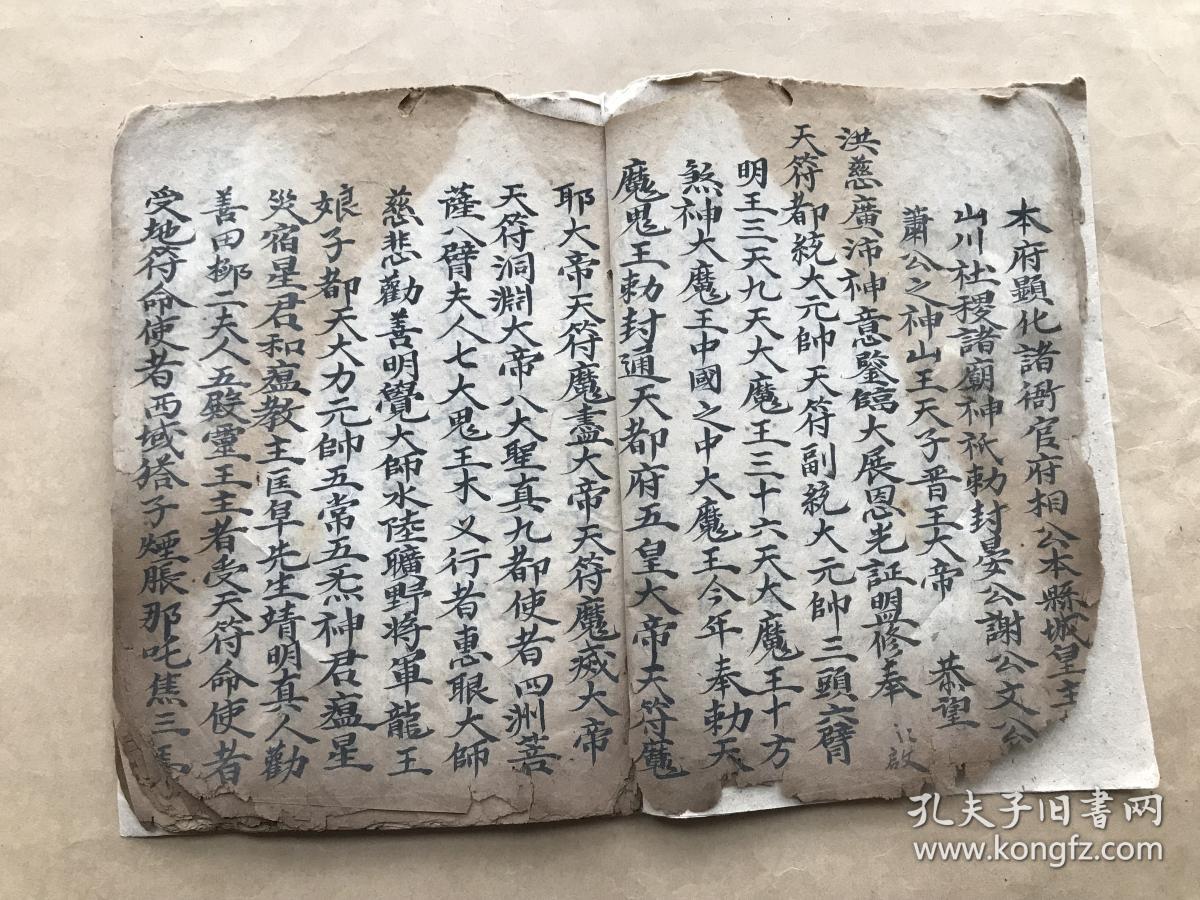 本府顯化諸衙官府相公本縣城皇主
山川社稷諸廟神祇勅封晏公謝公文公
蕭公之神山王天子晋王大帝 恭望
洪慈廣沛神意鑒臨大展恩光証盟修奉 啟
天符都統大元帥天符副統大元帥三頭六臂
明王三天九天大魔王三十六天大魔王十方
煞神大魔王中國之中大魔王今年奉勅天
魔鬼王勅封通天都府五皇大帝天符魔
耶大帝天符魔盡大帝天符魔滅大帝
天符洞淵大帝八大聖真九都使者四洲菩
薩八臂夫人七大鬼王木义行者惠眼大師
慈悲勸善明覺大師水陸曠野将軍龍王
娘子都天大力元帥五常五炁神君瘟星
災宿星君和瘟教主匡阜先生靖明真人勸
善田柳二夫人五殿靈王主者受天符命使者
受地符命使者西域搭子煙脹那吒焦三
孔夫子旧書网
www.kongfz.com